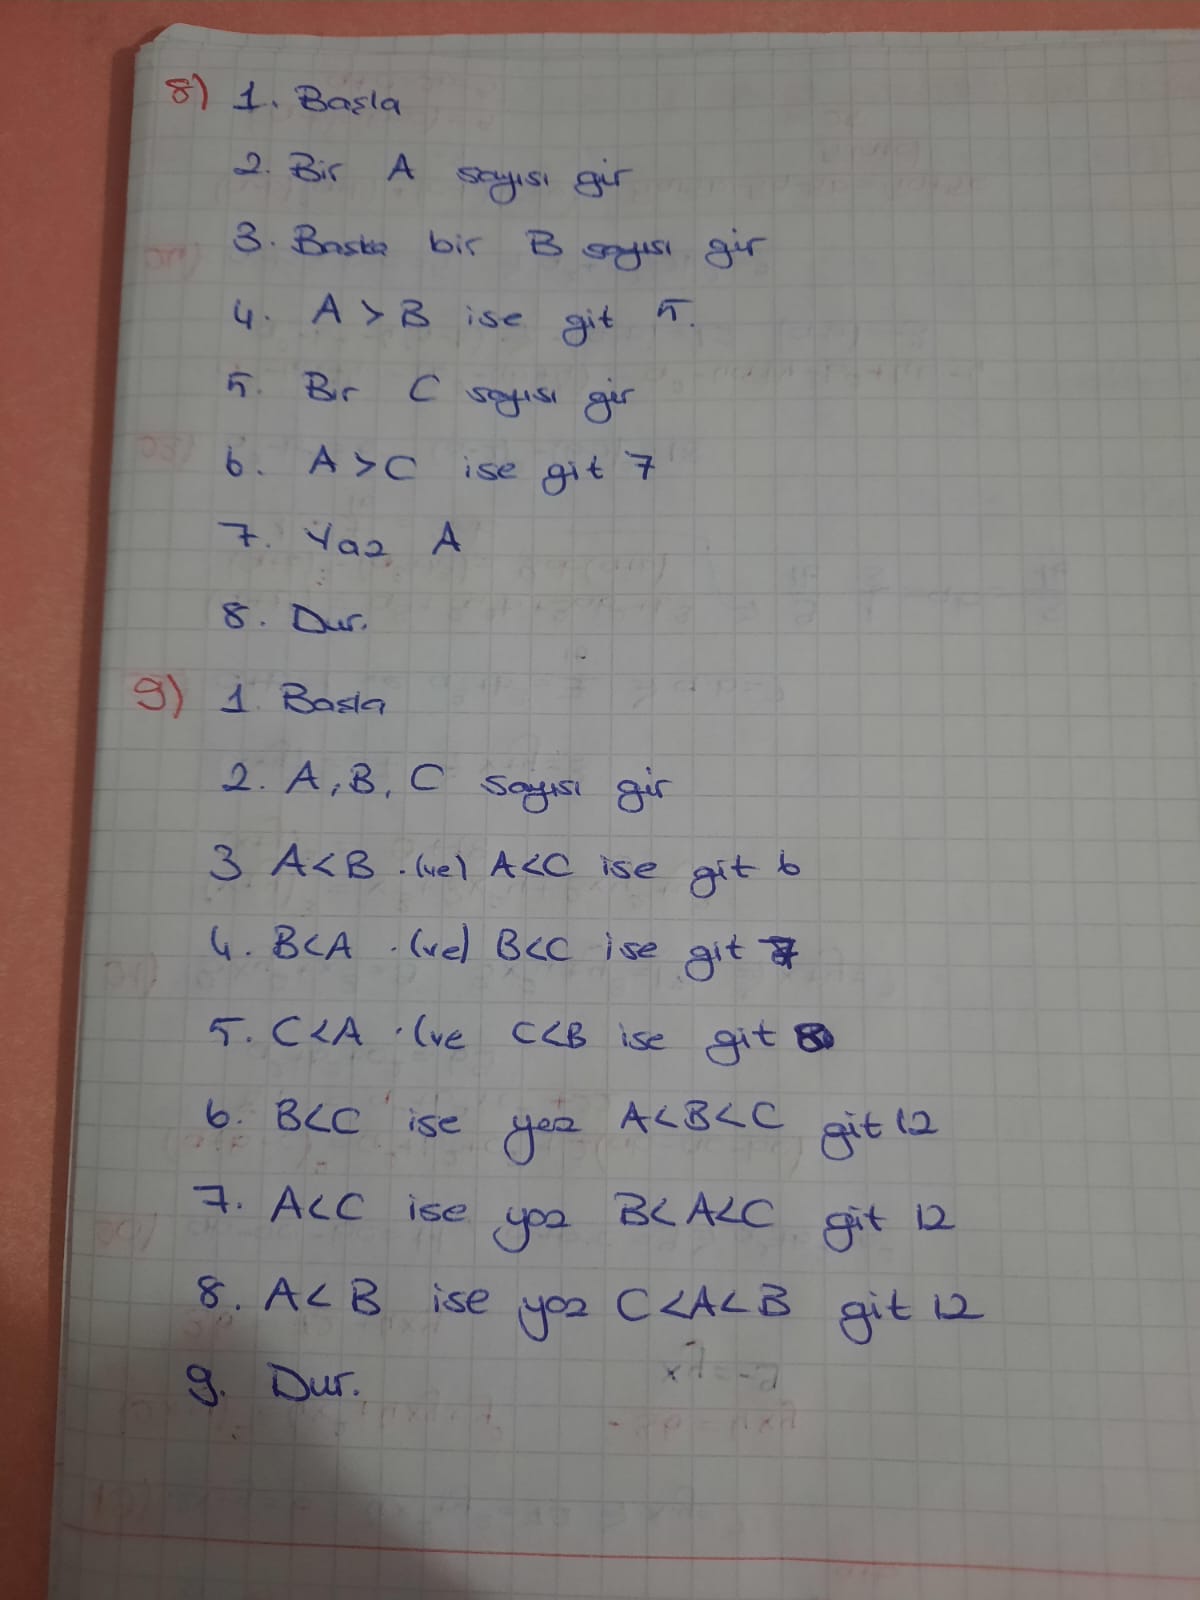 8) 1. Başla
2. Bir A sayısı gir
3. Başka bir B sayısı gir
4. A > B ise git 5.
5. Bir C sayısı gir
6. A > C ise git 7
7. Yaz A
8. Dur.
9) 1. Başla
2. A, B, C sayısı gir
3 A<B . (ve) A<C ise git 6
4. B<A . (ve) B<C ise git 7
5. C<A . (ve C<B ise git 8
6. B<C ise yaz A<B<C git 12
7. A<C ise yaz B<A<C git 12
8. A<B ise yaz C<A<B git 12
9. Dur.